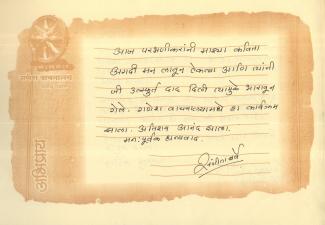 गणेश वाचनालय
आज परभणीकरांनी माझ्या कविता
अगदी मन लावून ऐकल्या आणि त्यांनी
जी उत्स्फूर्त दाद दिली त्यामुळे भारावून
गेले. गणेश वाचनालयामध्ये हा कार्यक्रम
झाला. अतिशय आनंद झाला.
मनःपूर्वक धन्यवाद.
अभिप्राय